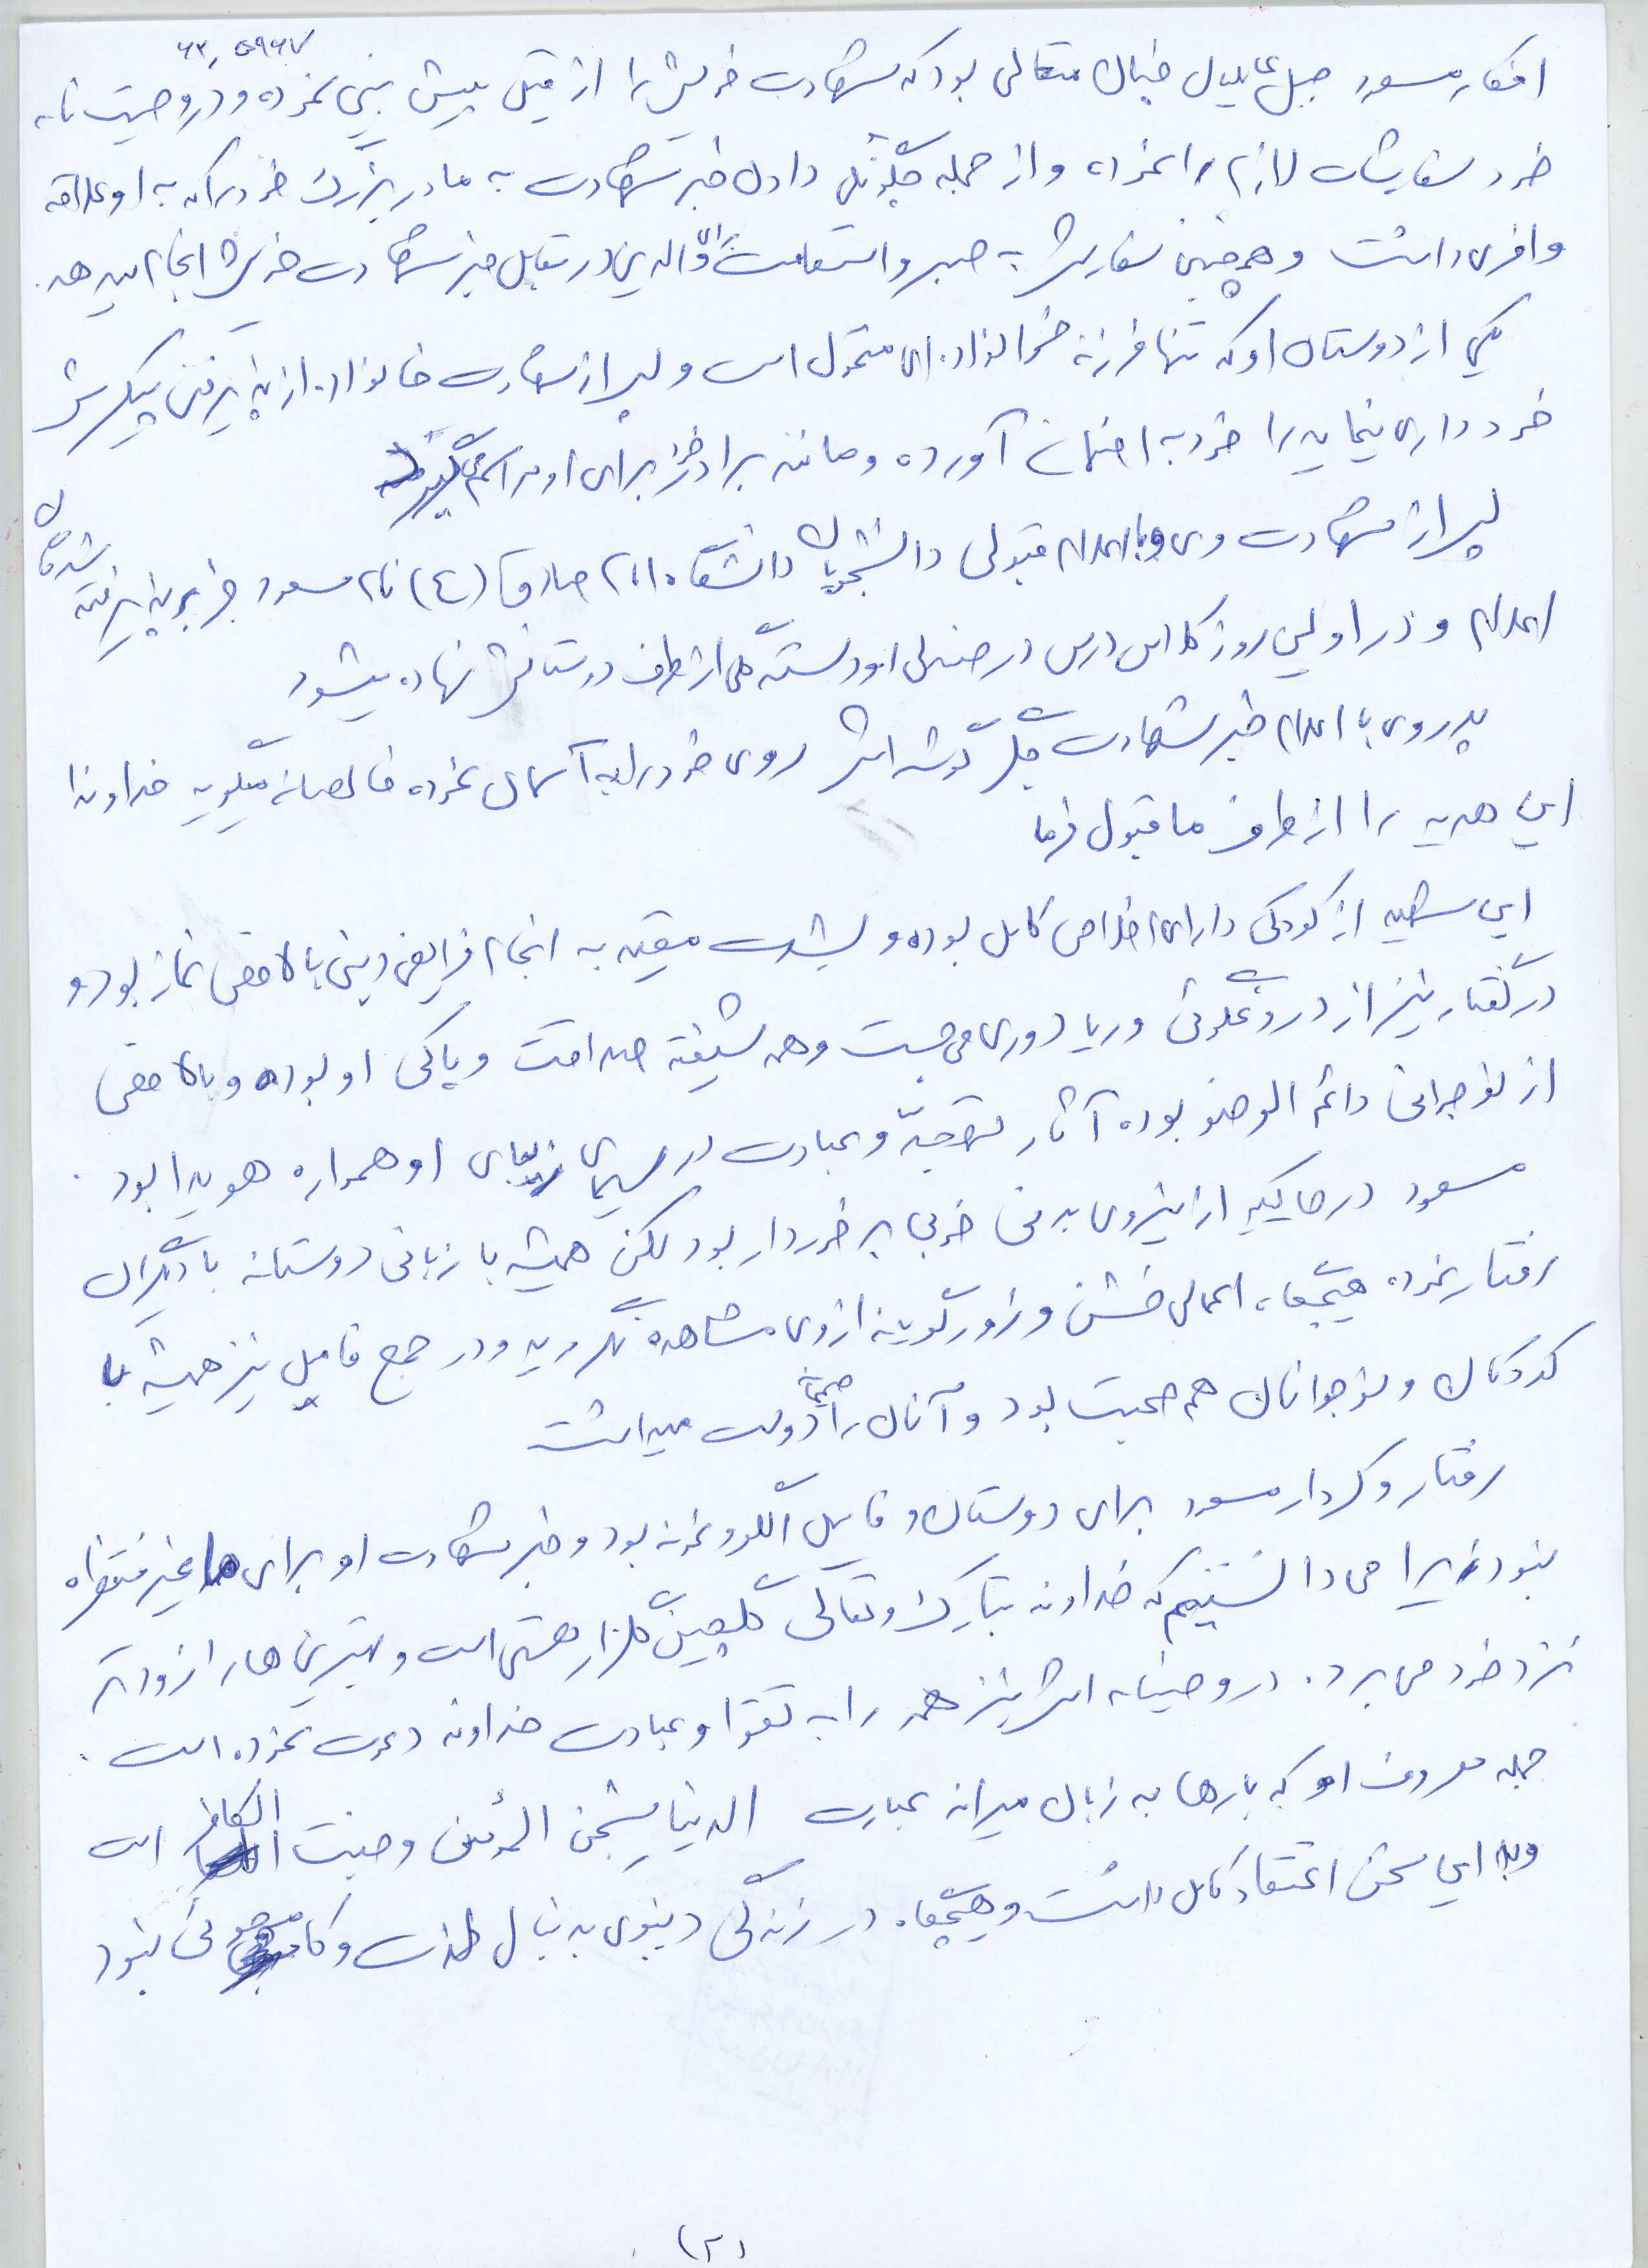 ۶۲, ۵۹۶۷
افکار مسعود جبل عاملی چنان متعالی بود که شهادت خویش را از قبل پیش بینی نموده و در وصیت نامه
خود سفارشات لازم را نموده و از جمله چگونگی دادن خبر شهادت به مادر بزرگ خود را که به او علاقه
وافری داشت و همچنین سفارش به صبر و استقامت والدین در مقابل خبر شهادت خویش انجام میدهد.
یکی از دوستان او که تنها فرزند خوانواده ای متمول است و پس از شهادت خانواده از پذیرفتن پیکرش
خودداری مینماید را خود به اصفهان آورده و مانند برادر خود برای او مراسم میگیرد
پس از شهادت وی و با اعلام قبولی دانشجویان دانشگاه امام صادق (ع) نام مسعود جزء پذیرفته شدگان
اعلام و در اولین روز کلاس درس در صندلی او دسته گلی از طرف دوستانش نهاده میشود
پدر وی با اعلام خبر شهادت جگر گوشه اش روی خود را به آسمان نموده خالصانه میگوید خداوندا
این هدیه را از طرف ما قبول فرما
این شهید از کودکی دارای اخلاص کامل بوده و بشدت مقید به انجام فرایض دینی بالاخص نماز بود و
در گفتار نیز از دروغگوئی و ریا دوری می جست و همه شیفته صداقت و پاکی او بوده و بالاخص
از نوجوانی دائم الوضو بوده آثار تهجد و عبادت در سیمای زیبای او همواره هویدا بود.
مسعود در حالیکه از نیروی بدنی خوبی برخوردار بود لکن همیشه با زبانی دوستانه با دیگران
رفتار نموده هیچگاه، اعمال خشن و زورگویانه از وی مشاهده نگردید و در جمع فامیل نیز همیشه با
کودکان و نوجوانان هم صحبت بود و آنان را صمیمانه دوست میداشت
رفتار و کردار مسعود برای دوستان و فامیل الگو و نمونه بود و خبر شهادت او برای ما غیر منتظره
نبود زیرا می دانستیم که خداوند تبارک و تعالی گلچین گلزار هستی است و بهترین ها را زودتر
نزد خود می برد. در وصیتنامه اش نیز همه را به تقوا و عبادت خداوند دعوت نموده است.
جمله معروف او که بارها به زبان میراند عبارت الدنیا سجن المؤمن و جنت الکافر است
و به این سخن اعتقاد کامل داشت و هیچگاه در زندگی دنیوی به دنبال لذت و کامجوئی نبود
(۲)